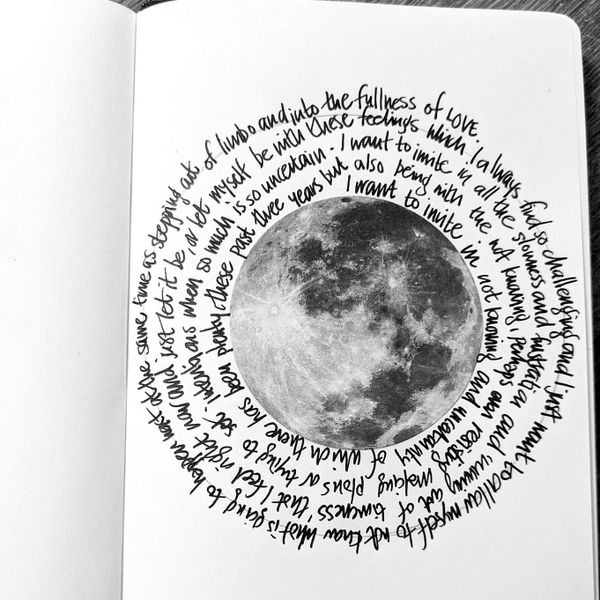 I want to invite in not knowing and uncertainty of which there has been plenty these past three years
but also being with the not knowing. Perhaps even resisting making plans or trying to set intentions when so much is so uncertain.
I want to invite in all the slowness and frustration and 'running out of timeness' that I feel right now and just let it be or let myself be with these feelings
which I always find so challenging and I just want to allow myself to not know what is going to happen next at the same time as stepping out of limbo and into the fullness of LOVE